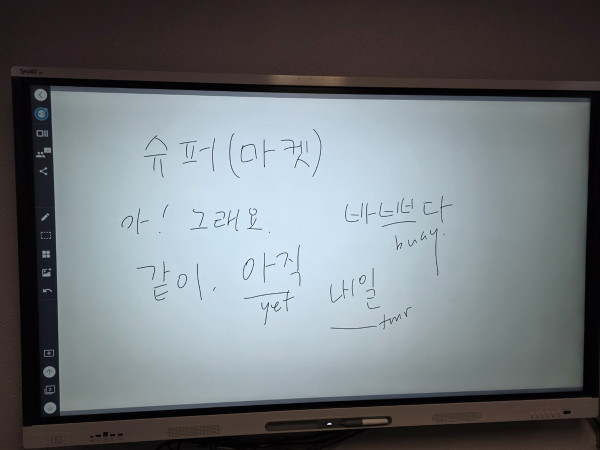 슈퍼(마켓)
아! 그래요.
바쁘다
busy.
같이. 아직
yet
내일
tmr